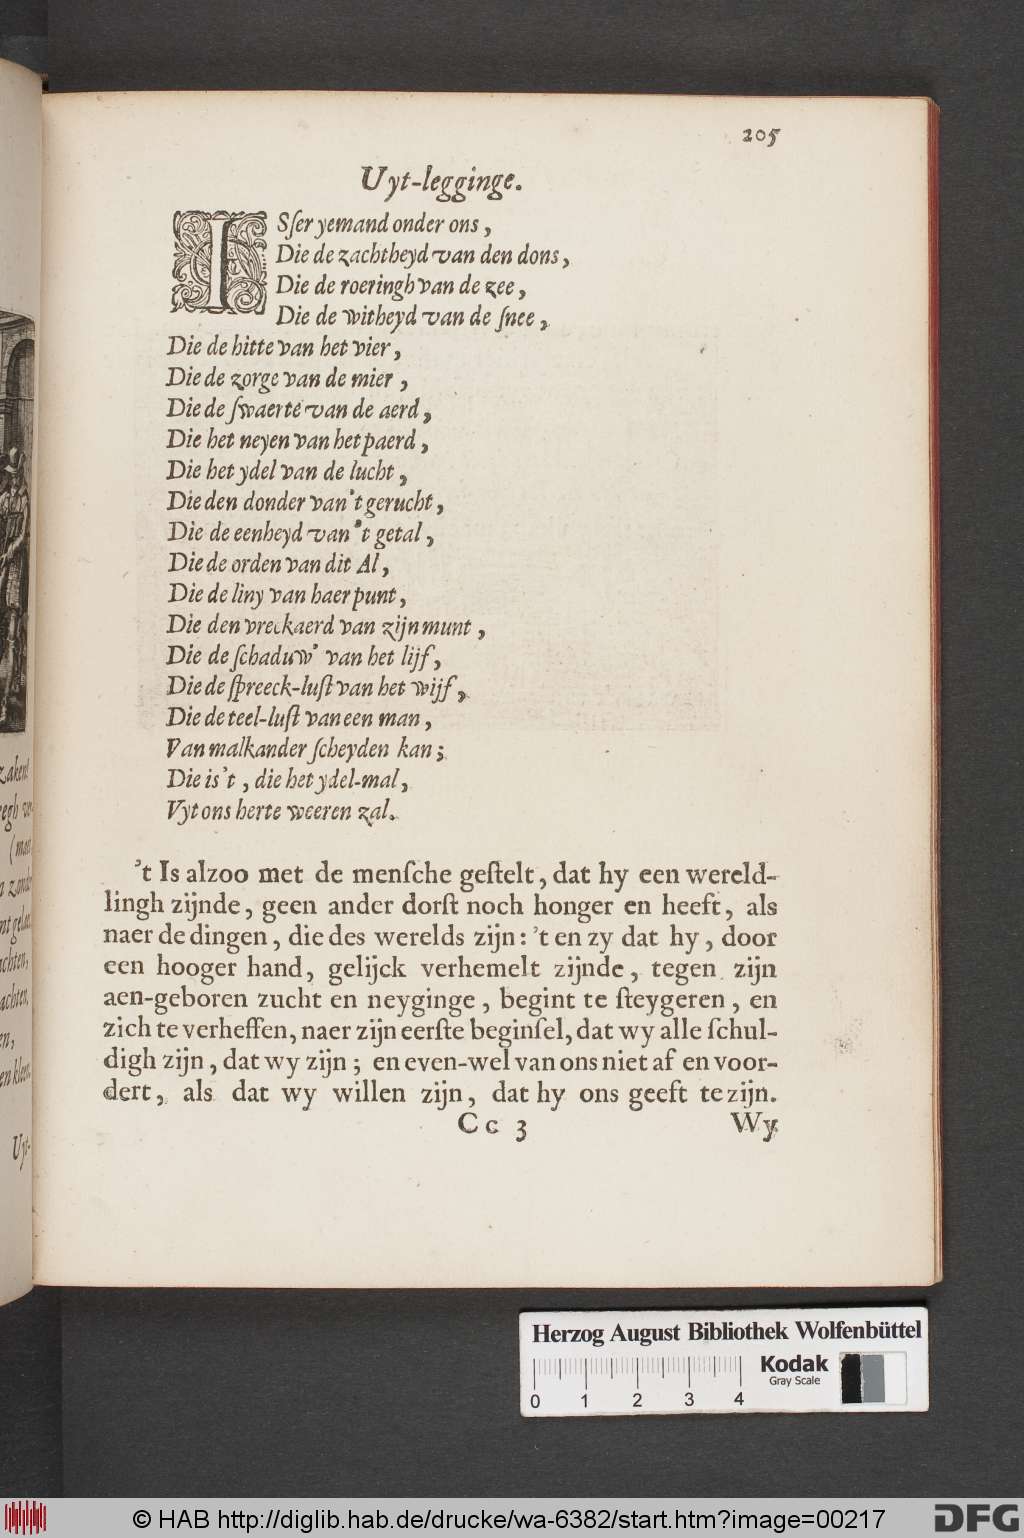 205
Uyt-legginge.
ISſer yemand onder ons,
Die de zachtheyd van den dons,
Die de roeringh van de zee,
Die de witheyd van de ſnee,
Die de hitte van het vier,
Die de zorge van de mier,
Die de ſwaerte van de aerd,
Die het neyen van het paerd,
Die het ydel van de lucht,
Die den donder van't gerucht,
Die de eenheyd van't getal,
Die de orden van dit Al,
Die de liny van haer punt,
Die den vreckaerd van zijn munt,
Die de ſchaduw' van het lijf,
Die de ſpreeck-luſt van het wijf,
Die de teel-luſt van een man,
Van malkander ſcheyden kan;
Die is't, die het ydel-mal,
Vyt ons herte weeren zal.
't Is alzoo met de menſche geſtelt, dat hy een wereld-
lingh zijnde, geen ander dorſt noch honger en heeft, als
naer de dingen, die des werelds zijn: 't en zy dat hy, door
een hooger hand, gelijck verhemelt zijnde, tegen zijn
aen-geboren zucht en neyginge, begint te ſteygeren, en
zich te verheffen, naer zijn eerſte beginſel, dat wy alle ſchul-
digh zijn, dat wy zijn; en even-wel van ons niet af en voor-
dert, als dat wy willen zijn, dat hy ons geeft te zijn.
Cc 3 Wy
zaken!
(man
achten,
en,
en kleen
Uyt-
Herzog August Bibliothek Wolfenbüttel
0 1 2 3 4
Kodak
Gray Scale
© HAB http://diglib.hab.de/drucke/wa-6382/start.htm?image=00217
DFG